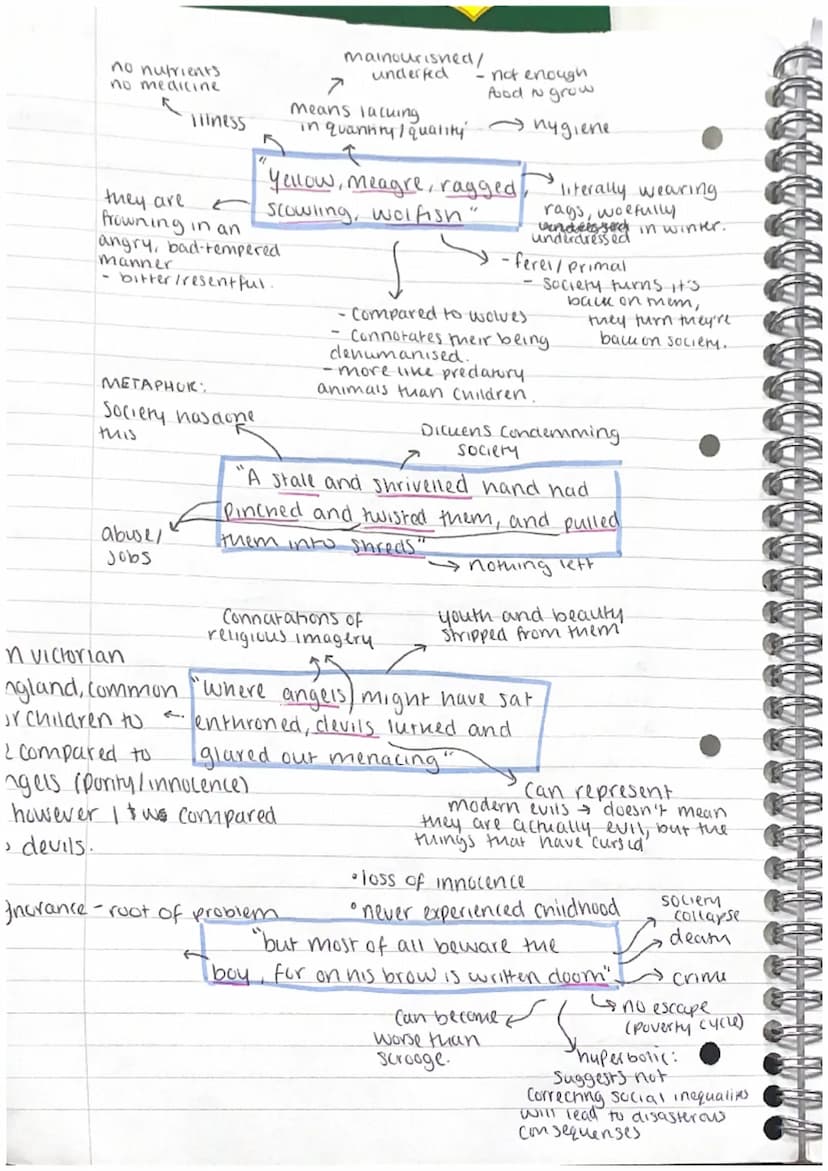 no nutrients
no medicine
illness
malnourished/
underfed
- not enough
food to grow
means lacking
in quantity/quality
hygiene
"Yellow, meagre, ragged,
scowling, wolfish"
they are
frowning in an
angry, bad-tempered
manner
- bitter/resentful.
literally wearing
rags, woefully
underdressed in winter.
- feral/primal
- society turns it's
back on them,
they turn they're
back on society.
- compared to wolves
- connotates their being
dehumanised.
- more like predatory
animals than children.
METAPHOR:
society has done
this
Dickens condemming
society
"A stale and shrivelled hand had
pinched and twisted them, and pulled
them into shreds"
abuse/
jobs
nothing left
connotations of
religious imagery
youth and beauty
stripped from them
n victorian
ngland, common
or children to
e compared to
ngels (purity/innocence)
however I & W compared
o devils.
"Where angels might have sat
enthroned, devils lurked and
glared out menacing"
can represent
modern evils → doesn't mean
they are actually evil, but the
things that have 'cursed'
• loss of innocence
• never experienced childhood
gnorance - root of problem
"but most of all beware the
boy, for on his brow is written doom"
society
collapse
death
crime
no escape
(poverty cycle)
can become
worse than
scrooge.
hyperbolic:
suggests not
correcting social inequalities
will lead to disasterous
consequenses